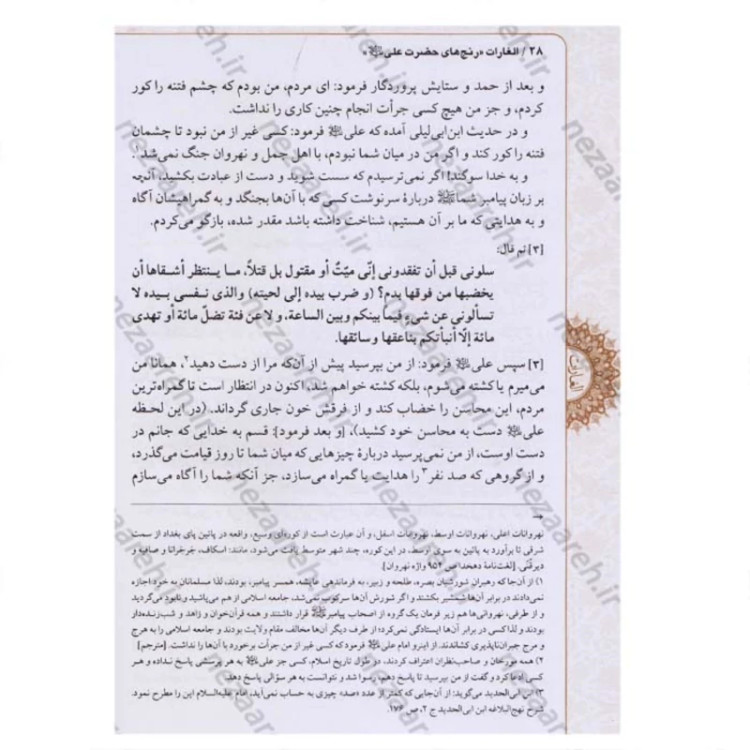 ۲۸ / الغارات «رنج‌های حضرت علی ﷷ»
و بعد از حمد و ستایش پروردگار فرمود: ای مردم، من بودم که چشم فتنه را کور
کردم، و جز من هیچ کسی جرأت انجام چنین کاری را نداشت.
و در حدیث ابن‌ابی‌لیلی آمده که علی فرمود: کسی غیر از من نبود تا چشمان
فتنه را کور کند و اگر من در میان شما نبودم، با اهل جمل و نهروان جنگ نمی‌شد.
و به خدا سوگند! اگر نمی‌ترسیدم که سست شوید و دست از عبادت بکشید، آنچه
بر زبان پیامبر شما دربارهٔ سرنوشت کسی که با آن‌ها بجنگد و به گمراهیشان آگاه
و به هدایتی که ما بر آن هستیم، شناخت داشته باشد مقدر شده، بازگو می‌کردم.
[۳] ثم قال:
سلونی قبل أن تفقدونی إنّی میّتٌ أو مقتول بل قتلاً، ما ینتظر أشقاها أن
یخضبها من فوقها بدم؟ (و ضرب بیده إلی لحیته) والذی نفسی بیده لا
تسألونی عن شیءٍ فیما بینکم وبین الساعة، و لا عن فئة تضلّ مائة أو تهدی
مائة إلّا أنبأتکم بناعقها وسائقها.
[۳] سپس علی فرمود: از من بپرسید پیش از آن‌که مرا از دست دهید۲، همانا من
می‌میرم یا کشته می‌شوم، بلکه کشته خواهم شد، اکنون در انتظار است تا گمراه‌ترین
مردم، این محاسن را خضاب کند و از فرقش خون جاری گرداند. (در این لحظه
علی دست به محاسن خود کشید)، [و بعد فرمود]: قسم به خدایی که جانم در
دست اوست، از من نمی‌پرسید دربارهٔ چیزهایی که میان شما تا روز قیامت می‌گذرد،
و از گروهی که صد نفر۳ را هدایت یا گمراه می‌سازد، جز آنکه شما را آگاه می‌سازم
→
نهروانات اعلی، نهروانات اوسط، نهروانات اسفل، و آن عبارت است از کوره‌ای وسیع، واقعه در پائین پای بغداد از سمت
شرقی تا برآورد به پائین به سوی اوسط، در این کوره، چند شهر متوسط یافت می‌شود، مانند: اسکاف، جرجرانا و صافیه و
دیرقُنّی. [لغت‌نامهٔ دهخدا ص ۹۵۲ واژه نهروان].
۱) از آن‌جا که رهبران شورشیان بصره، طلحه و زبیر، به فرماندهی عایشه، همسر پیامبر، بودند، لذا مسلمانان به خود اجازه
نمی‌دادند در برابر آن‌ها شمشیر بکشند و اگر شورش آن‌ها سرکوب نمی‌شد، جامعه اسلامی از هم می‌پاشید و نابود می‌گردید
و از طرفی، نهروانی‌ها هم زیر فرمان یک گروه از اصحاب پیامبر قرار داشتند و همه قرآن‌خوان و زاهد و شب‌زنده‌دار
بودند و لذا کسی در برابر آن‌ها ایستادگی نمی‌کرد؛ از طرف دیگر آن‌ها مخالف مقام ولایت بودند و جامعه اسلامی را به هرج
و مرج جبران‌ناپذیری کشاندند. از اینرو امام علی فرمود که کسی غیر از من جرأت برخورد با آن‌ها را نداشت. [مترجم]
۲) همه مورخان و صاحب‌نظران اعتراف کردند، در طول تاریخ اسلام، کسی جز علی به هر پرسشی پاسخ نداده و هر
کسی ادعا کرد و گفت از من بپرسید تا پاسخ دهم، رسوا شد و نتوانست به هر سؤالی پاسخ دهد.
۳) ابن ابی‌الحدید می‌گوید: از آن‌جایی که کمتر از عدد «صد» چیزی به حساب نمی‌آید، امام علیه‌السلام این را مطرح نمود.
شرح نهج‌البلاغه ابن ابی‌الحدید ج ۲، ص ۱۷۶.
الغارات
nezaareh.ir